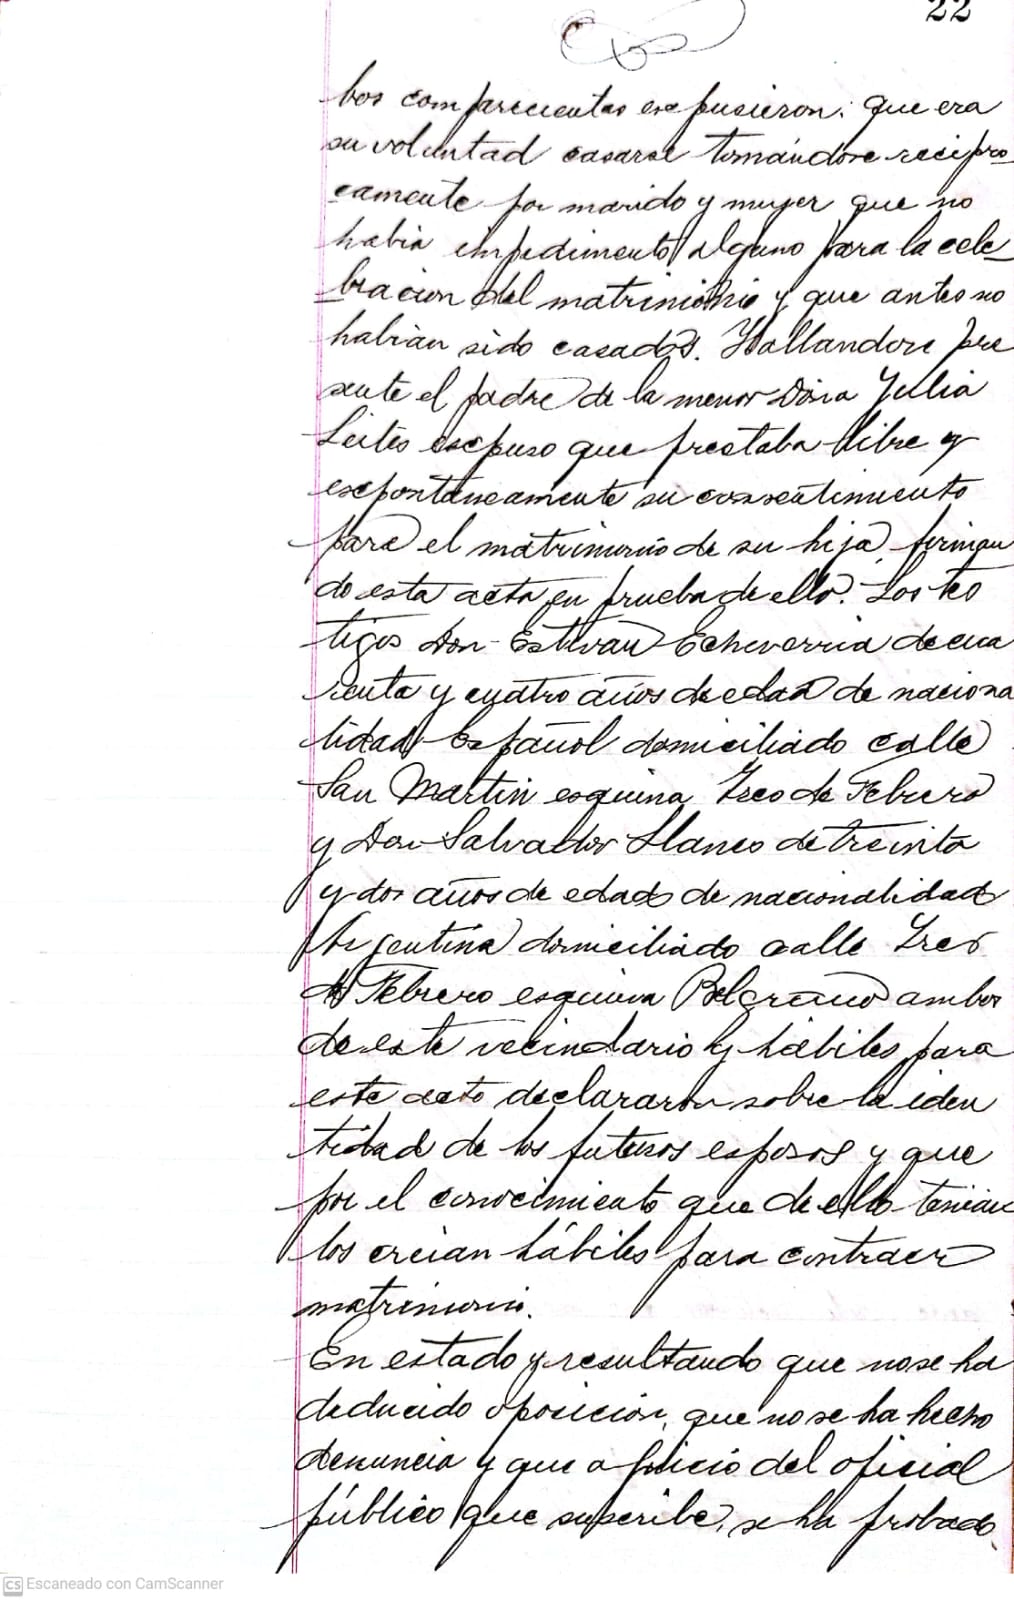 22
bos comparecientes expusieron: que era
su voluntad casarse tomándose recipro
camente por marido y mujer que no
habia impedimento alguno para la cele
bracion del matrimonio y que antes no
habian sido casados. Hallandose pre
sente el padre de la menor Doña Julia
Leites expuso que prestaba libre y
espontaneamente su consentimiento
para el matrimonio de su hija, firman
do esta acta en prueba de ello. Los tes
tigos Don Estevan Echeverria de cua
renta y cuatro años de edad de naciona
lidad Español domiciliado calle
San Martin esquina Tres de Febrero
y Don Salvador Llanes de treinta
y dos años de edad de nacionalidad
Argentina domiciliado calle Tres
de Febrero esquina Belgrano ambos
de este vecindario y hábiles para
este acto declararon sobre la iden
tidad de los futuros esposos y que
por el conocimiento que de ello tenian
los creian hábiles para contraer
matrimonio.
En estado y resultando que no se ha
deducido oposicion, que no se ha hecho
denuncia y que a juicio del oficial
público que suscribe, se ha probado
CS Escaneado con CamScanner